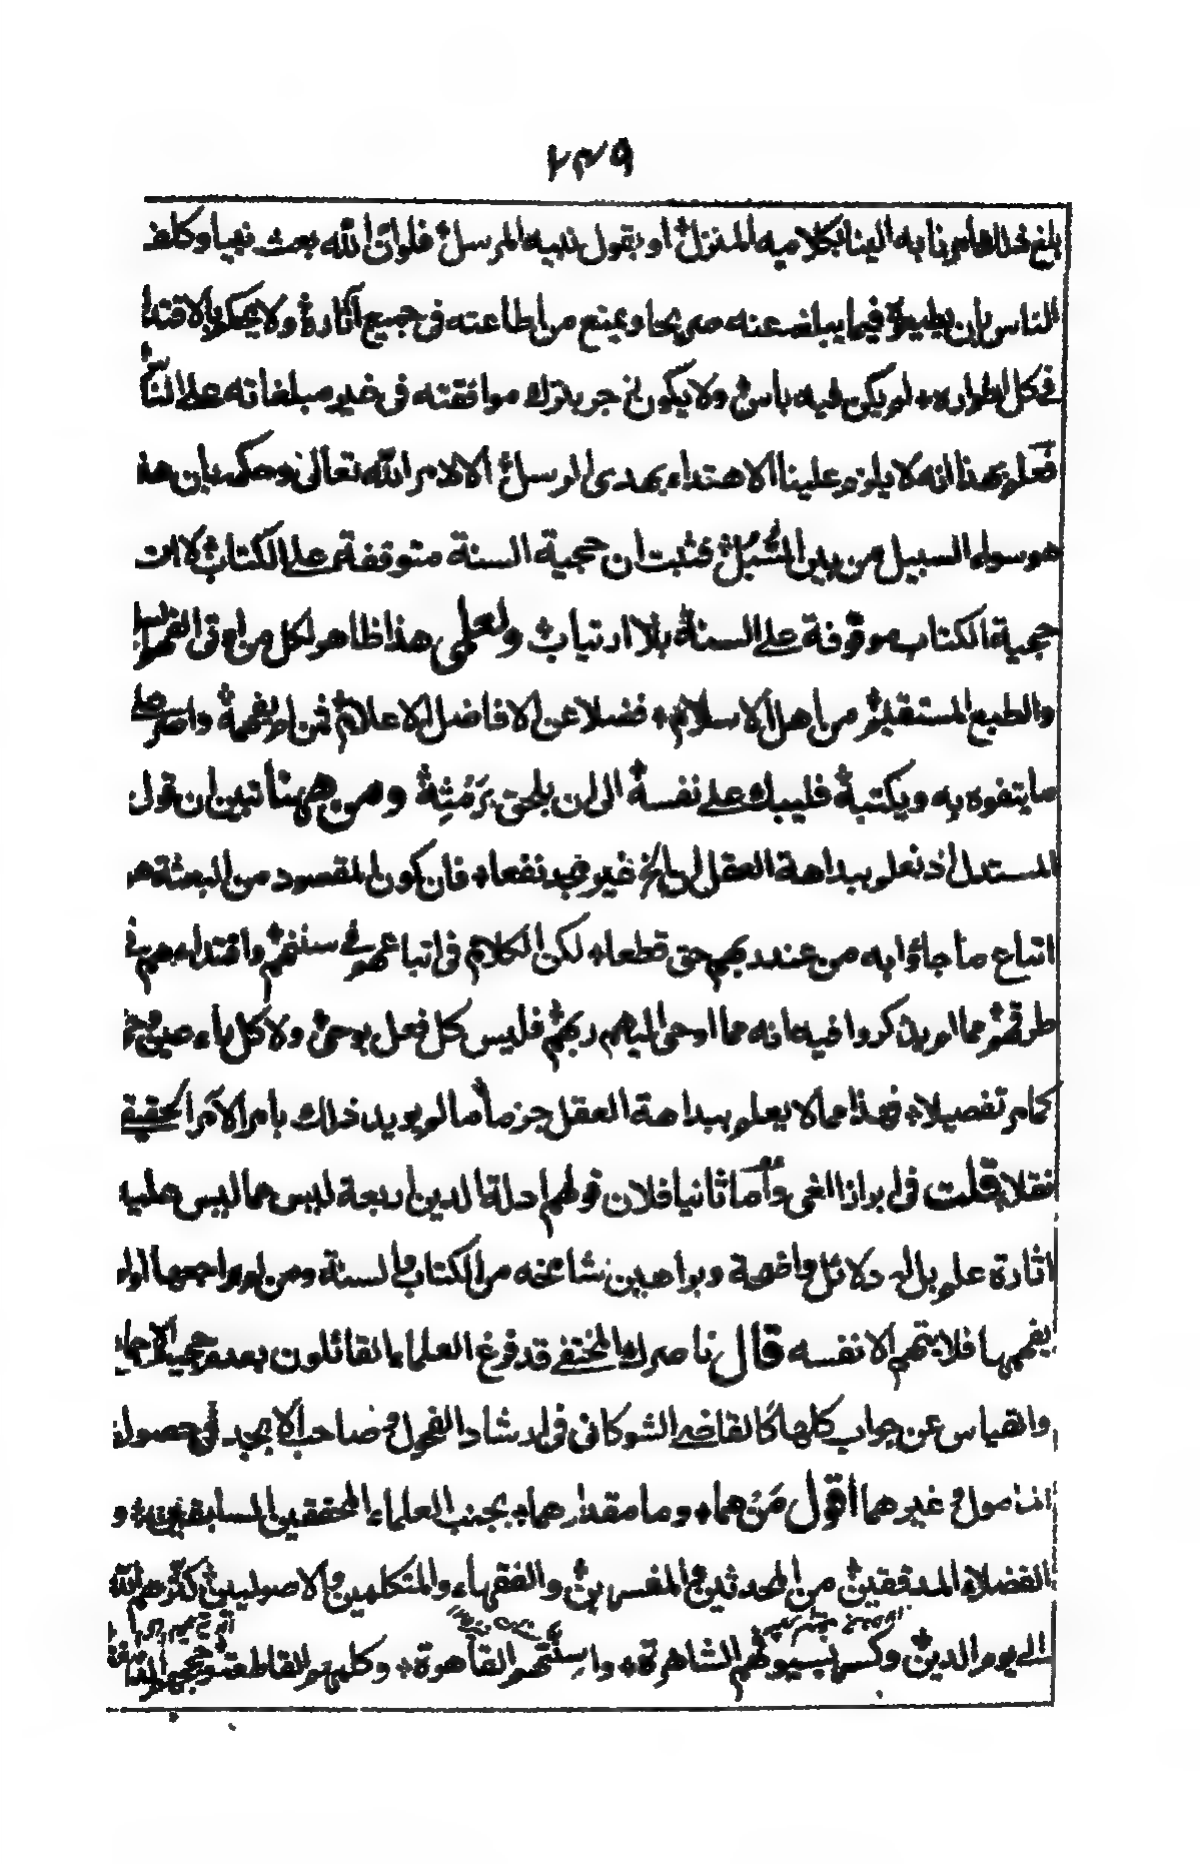 ٢٣٩
بلغ هذا ما امرنا به الينا بكلاميه المنزل او بقول نبيه المرسل فلو ان الله بعث نبيا وكلف
الناس بان يطيعوه فيما يبلغه عنه صريحا ويمنع من اطاعته فى جميع آثاره ولا يحكم بالاقتداء
فى كل اطواره لم يكن فيه باس ولا يكون فى حرج بترك موافقته فى غير مبلغاته على الناس
فعلم بهذا انه لا يلزم علينا الاهتداء بهدى الرسل الا لامر الله تعالى وحكمه بان هذا
هو سواء السبيل من بين السبل فثبت ان حجية السنة متوقفة على الكتاب لا ان
حجية الكتاب موقوفة على السنة بلا ارتياب ولعلى هذا ظاهر لكل من اوتى الفهم السليم
والطبع المستقيم من اهل الاسلام فضلا عن الافاضل الاعلام فمن لم يفهمه واصر على
ما يتفوه به ويكتبه فليبك على نفسه الى ان يلحق برمسه ومن ههنا تبين ان قول
المستدل اذ نعلم ببداهة العقل الى اخره غير مجد نفعا فان كون المقصود من البعثة هو
اتباع ما جاؤا به من عند ربهم حق قطعا لكن الكلام فى اتباعهم فى سننهم واقتداءهم فى
طرقهم مما لم يذكروا فيه انه مما اوحى اليهم ربهم فليس كل فعل بوحى ولا كل
كما مر تفصيلا فهذا مما لا يعلم ببداهة العقل جزما ما لم يويد ذلك بامر الآمر الحقيقى
نقلا قلت فى ابراز الغى واما ثانيا فلان قولهم ادلة الدين اربعة ليس مما ليس عليه
اثارة علم بل له دلائل واضحة وبراهين شامخة من الكتاب والسنة ومن لم يراجعها او لم
يفهمها فلا يتهم الا نفسه قال ناصرك المختفى قد فرغ العلماء القائلون بعدم حجية الاجماع
والقياس عن جواب كلها كالقاضى الشوكانى فى ارشاد الفحول وصاحب الابجد فى حصول
المامول وغيرهما اقول من هما وما مقدارهما بجنب العلماء المحققين السابقين و
الفضلاء المدققين من المحدثين والمفسرين والفقهاء والمتكلمين والاصوليين كثرهم الله
الى يوم الدين وكسر بسيوفهم الشاهرة واسنتهم القاهرة وكلمهم القاطعة وحججهم